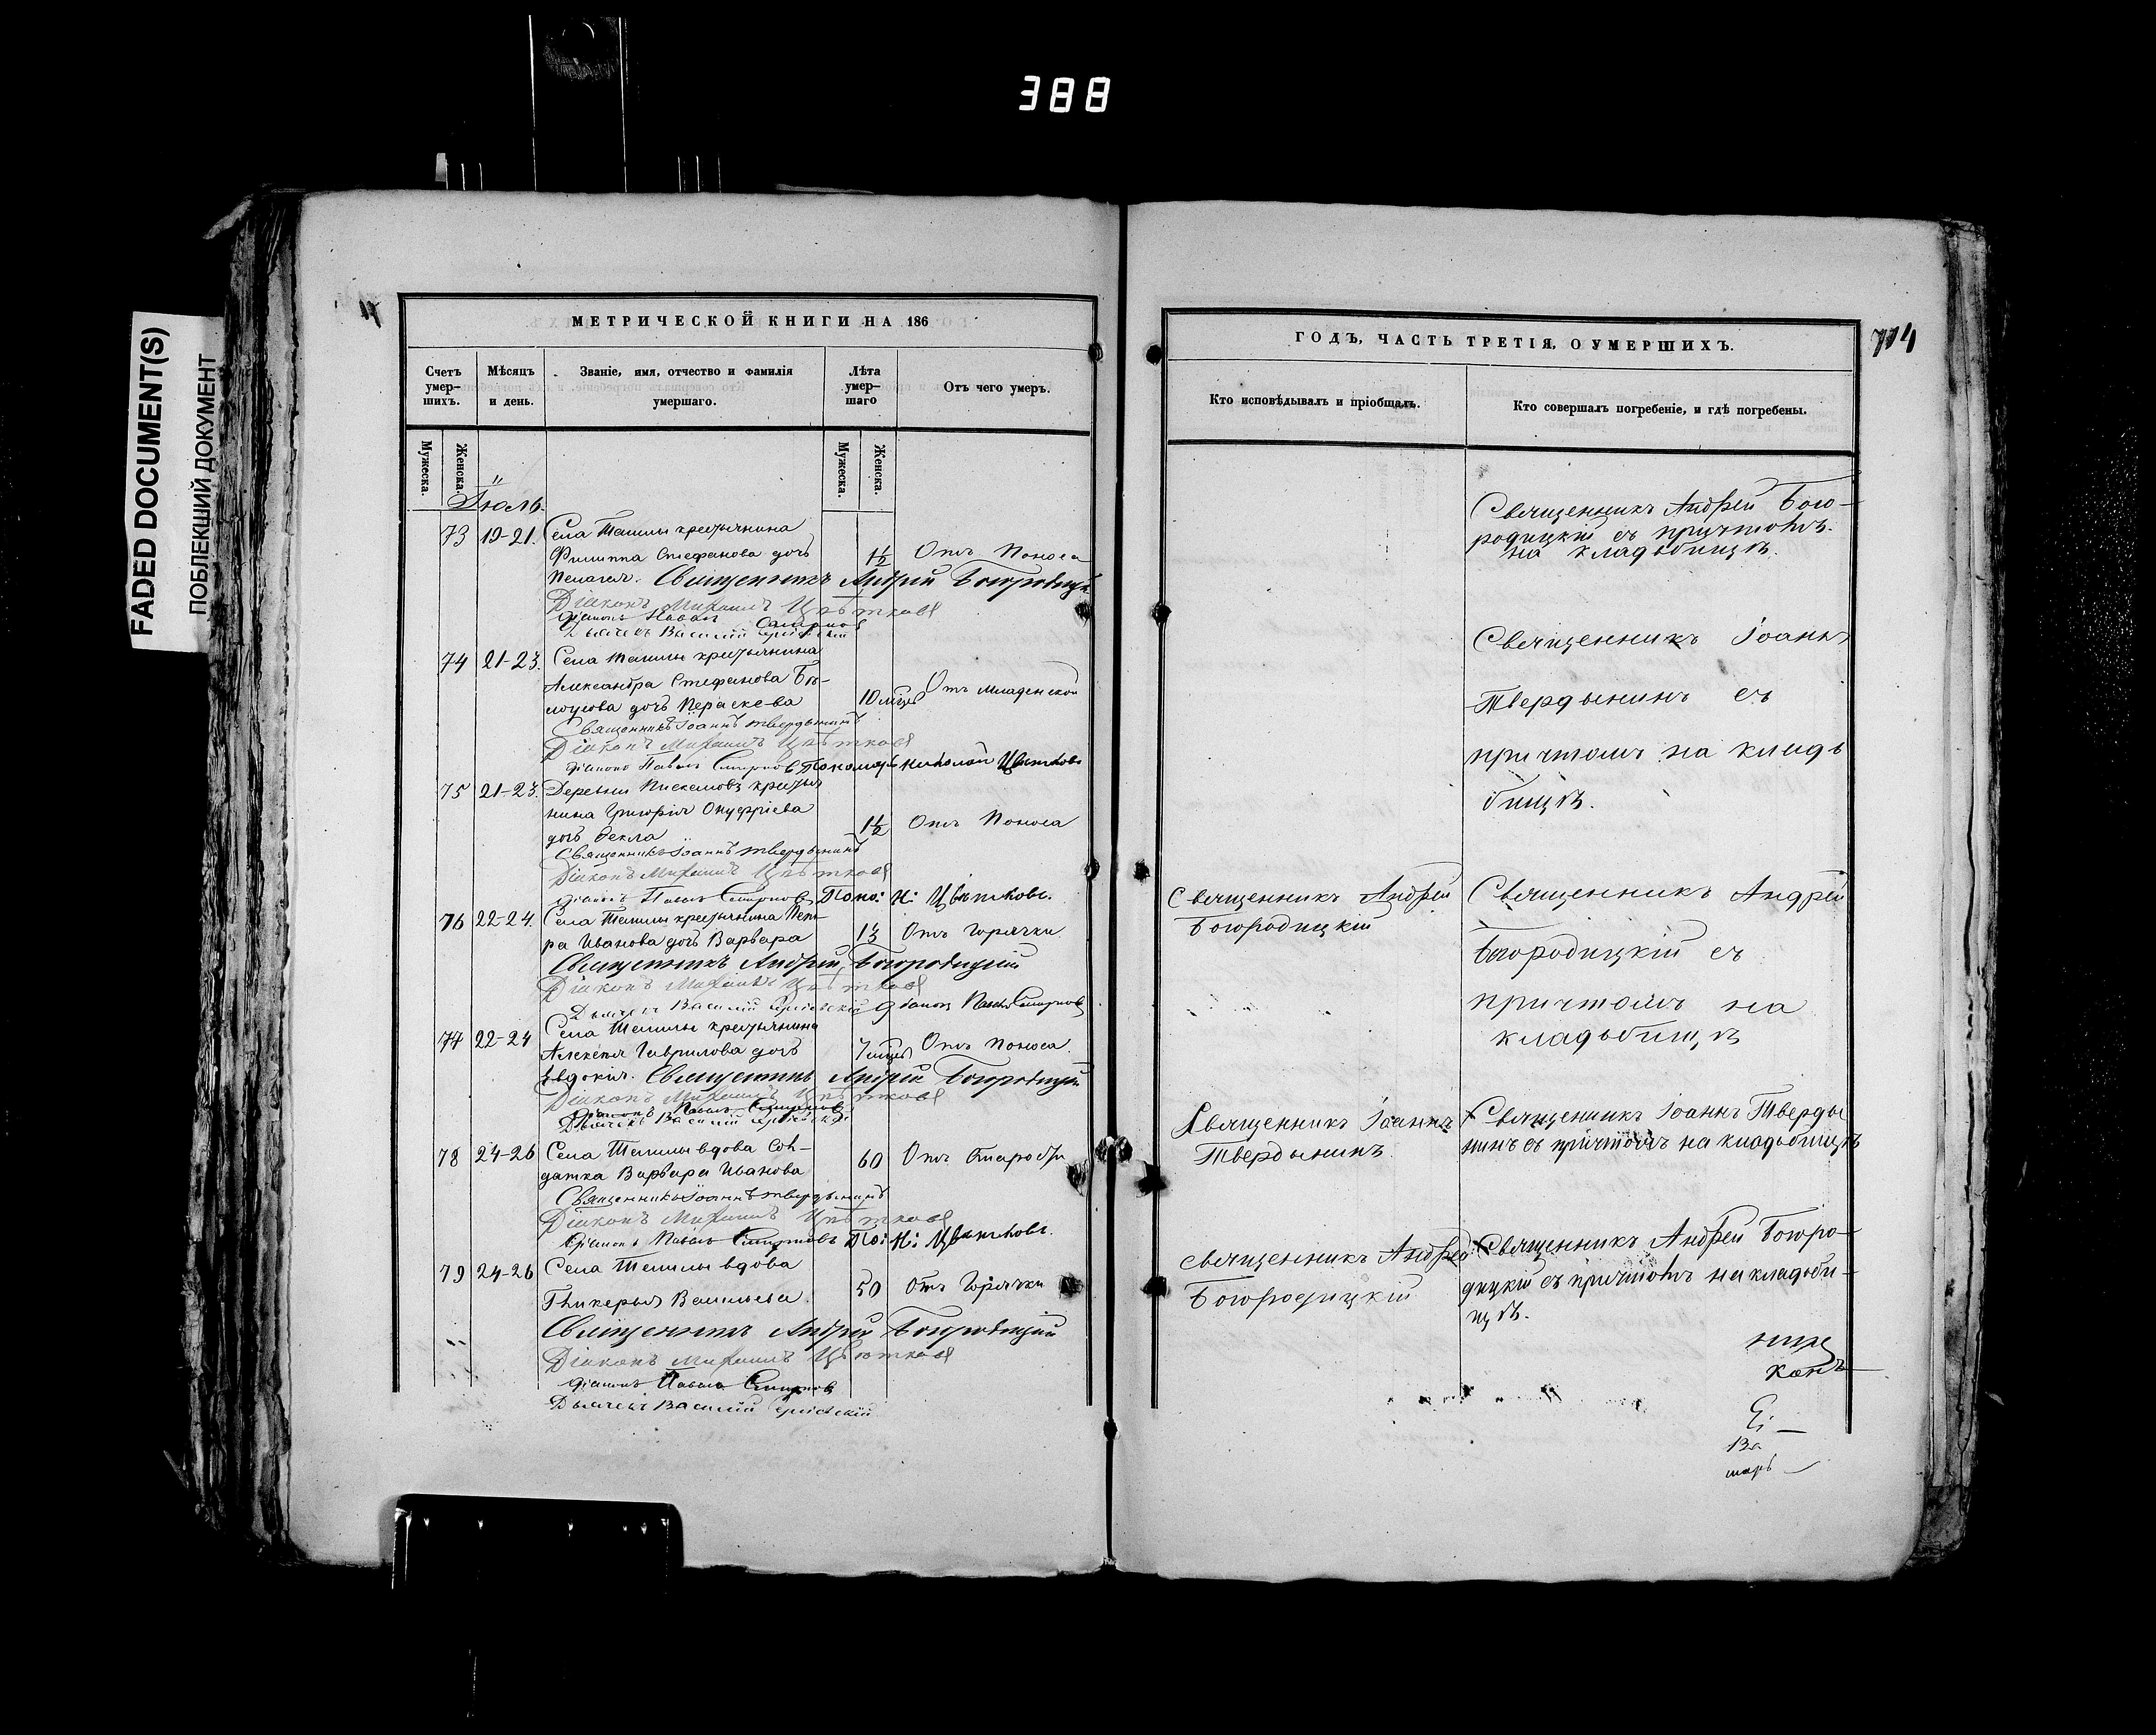 388
FADED DOCUMENT(S)
ПОБЛЕКШИЙ ДОКУМЕНТ
МЕТРИЧЕСКОЙ КНИГИ НА 186
Счетъ умер-шихъ.
Мѣсяцъ и день.
Званіе, имя, отчество и фамилія умершаго.
Лѣта умер-шаго
Отъ чего умеръ.
Мужеска.
Женска.
Мужеска.
Женска.
Іюль.
73 19-21. Села крестьянина
Филиппа Стефанова дочь 1½ Отъ Поноса
Пелагея. Священникъ Андрей Богородицкій
Діаконъ Михаилъ Цвѣтковъ
Діаконъ Павелъ Смирновъ
Дьячекъ Василій
74 21-23. Села крестьянина
Александра Стефанова Бѣ- 10 мцевъ Отъ Младенской
лоусова дочь Параскева
Священникъ Іоаннъ Твердынинъ
Діаконъ Михаилъ Цвѣтковъ
Діаконъ Павелъ Смирновъ Пономарь Николай Цвѣтковъ
75 21-23. Деревни крестья
нина Григорія Онуфріева 1½ Отъ Поноса
дочь Фекла
Священникъ Іоаннъ Твердынинъ
Діаконъ Михаилъ Цвѣтковъ
Діаконъ Павелъ Смирновъ Поно: Н: Цвѣтковъ.
76 22-24. Села крестьянина Пет-
ра Иванова дочь Варвара 1⅓ Отъ Горячки
Священникъ Андрей Богородицкій
Діаконъ Михаилъ Цвѣтковъ
Дьячекъ Василій Діаконъ Павелъ Смирновъ
77 22-24 Села крестьянина
Алексѣя Гаврилова дочь 7 мцевъ Отъ Поноса.
Евдокія. Священникъ Андрей Богородицкій
Діаконъ Михаилъ Цвѣтковъ
Діаконъ Павелъ Смирновъ
Дьячекъ Василій
78 24-26 Села вдова Сол-
датка Варвара Иванова 60 Отъ Старости
Священникъ Іоаннъ Твердынинъ
Діаконъ Михаилъ Цвѣтковъ
Діаконъ Павелъ Смирновъ По: Н: Цвѣтковъ.
79 24-26 Села вдова
Гликерья Васильева 50 Отъ Горячки
Священникъ Андрей Богородицкій
Діаконъ Михаилъ Цвѣтковъ
Діаконъ Павелъ Смирновъ
Дьячекъ Василій
ГОДЪ, ЧАСТЬ ТРЕТІЯ, О УМЕРШИХЪ.
Кто исповѣдывалъ и пріобщалъ.
Кто совершалъ погребеніе, и гдѣ погребены.
Священникъ Андрей Бого-
родицкій съ причтомъ.
на кладьбищѣ.
Священникъ Іоаннъ
Твердынинъ съ
причтомъ на кладь
бищѣ.
Священникъ Андрей
Богородицкій
Священникъ Андрей
Богородицкій съ
причтомъ на
кладьбищѣ
Священникъ Іоаннъ
Твердынинъ.
Священникъ Іоаннъ Тверды
нинъ съ причтомъ на кладьбищѣ
Священникъ Андрей
Богородицкій
Священникъ Андрей Богоро-
дицкій съ причтомъ на кладьби-
щѣ.